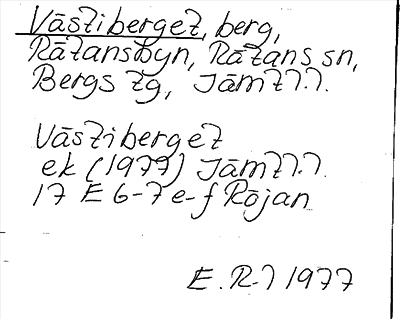 Västiberget, berg,
Rätansbyn, Rätans sn,
Bergs tg, Jämtl.l.
Västiberget
ek (1977) Jämtl.l.
17 E 6-7 e-f Röjan
E.R-l 1977